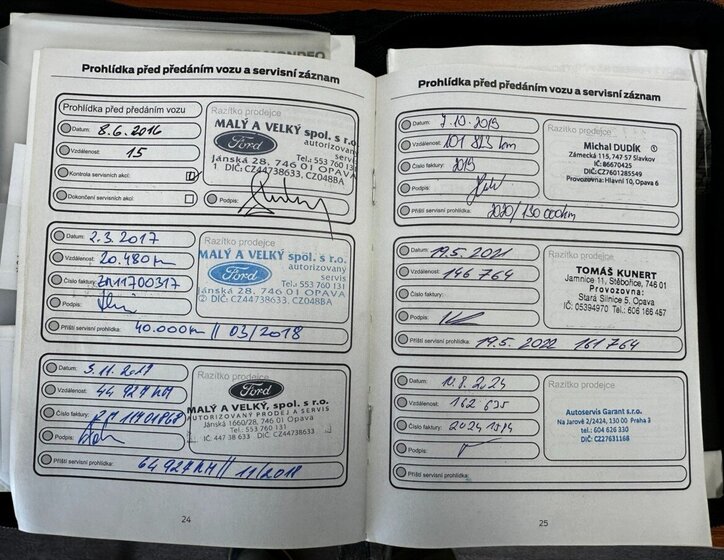 FORD MONDEO
Prohlídka před předáním vozu a servisní záznam
Prohlídka před předáním vozu
Datum: 8.6.2016
Vzdálenost: 15
Kontrola servisních akcí:
Dokončení servisních akcí:
Razítko prodejce
MALÝ A VELKÝ spol. s r.o.
Ford
autorizovaný
servis
Tel.: 553 760 131
Jánská 28, 746 01 OPAVA
1 DIČ: CZ44738633, CZ048BA
Podpis:
Datum: 2.3.2017
Vzdálenost: 20.480 km
Číslo faktury: ZA11700317
Podpis:
Příští servisní prohlídka: 40.000 km // 03/2018
Razítko prodejce
MALÝ A VELKÝ spol. s r.o.
Ford
autorizovaný
servis
Tel.: 553 760 131
Jánská 28, 746 01 OPAVA
② DIČ: CZ44738633, CZ048BA
Datum:
Vzdálenost: 44 927 KM
Číslo faktury:
Podpis:
Příští servisní prohlídka: 64 927 KM // 11/2018
Razítko prodejce
Ford
MALÝ A VELKÝ, spol. s r.o.
AUTORIZOVANÝ PRODEJ A SERVIS
Jánská 1660/28, 746 01 Opava
Tel.: 553 760 131
IČ: 447 38 633 DIČ: CZ44738633
24
Prohlídka před předáním vozu a servisní záznam
Datum: 7.10.2019
Vzdálenost: 101 813 km
Číslo faktury: 2019
Podpis:
Příští servisní prohlídka: 2020/130 000km
Razítko prodejce
Michal DUDÍK ①
Zámecká 115, 747 57 Slavkov
IČ: 86670425
DIČ: CZ7601285549
Provozovna: Hlavní 10, Opava 6
Datum: 19.5.2021
Vzdálenost: 146 764
Číslo faktury:
Podpis:
Příští servisní prohlídka: 19.5.2022 161 764
Razítko prodejce
TOMÁŠ KUNERT
Jamnice 11, Stěbořice, 746 01
Provozovna:
Stará Silnice 5, Opava
IČ: 05394970 Tel.: 606 166 457
Datum:
Vzdálenost: 162 635
Číslo faktury:
Podpis:
Příští servisní prohlídka:
Razítko prodejce
Autoservis Garant s.r.o.
Na Jarově 2/2424, 130 00 Praha 3
tel.: 604 626 330
DIČ: CZ27631168
25